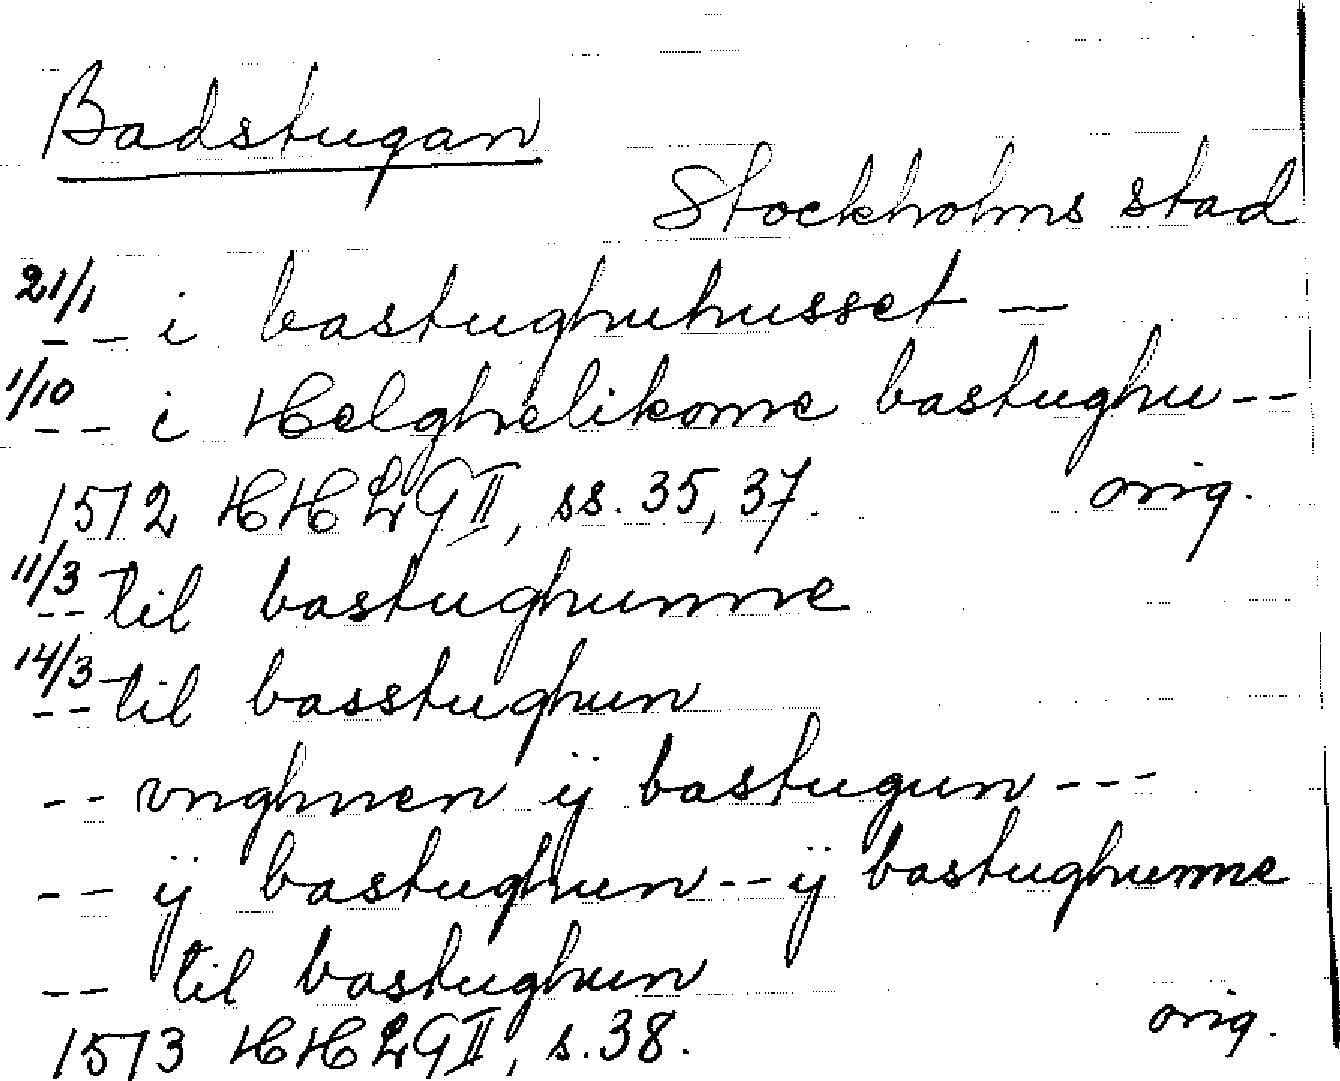 Badstugan
Stockholms stad
21/1 -- i bastughuhusset --
1/10 -- i Helghelikome bastughu --
1512 HHLG II, ss. 35, 37. orig.
11/3 -- til bastughunne
14/3 -- til basstughun
-- vnghnen ij bastugun ---
-- ij bastughun -- ij bastughunne
-- til bastughun
1513 HHLG II, s. 38. orig.